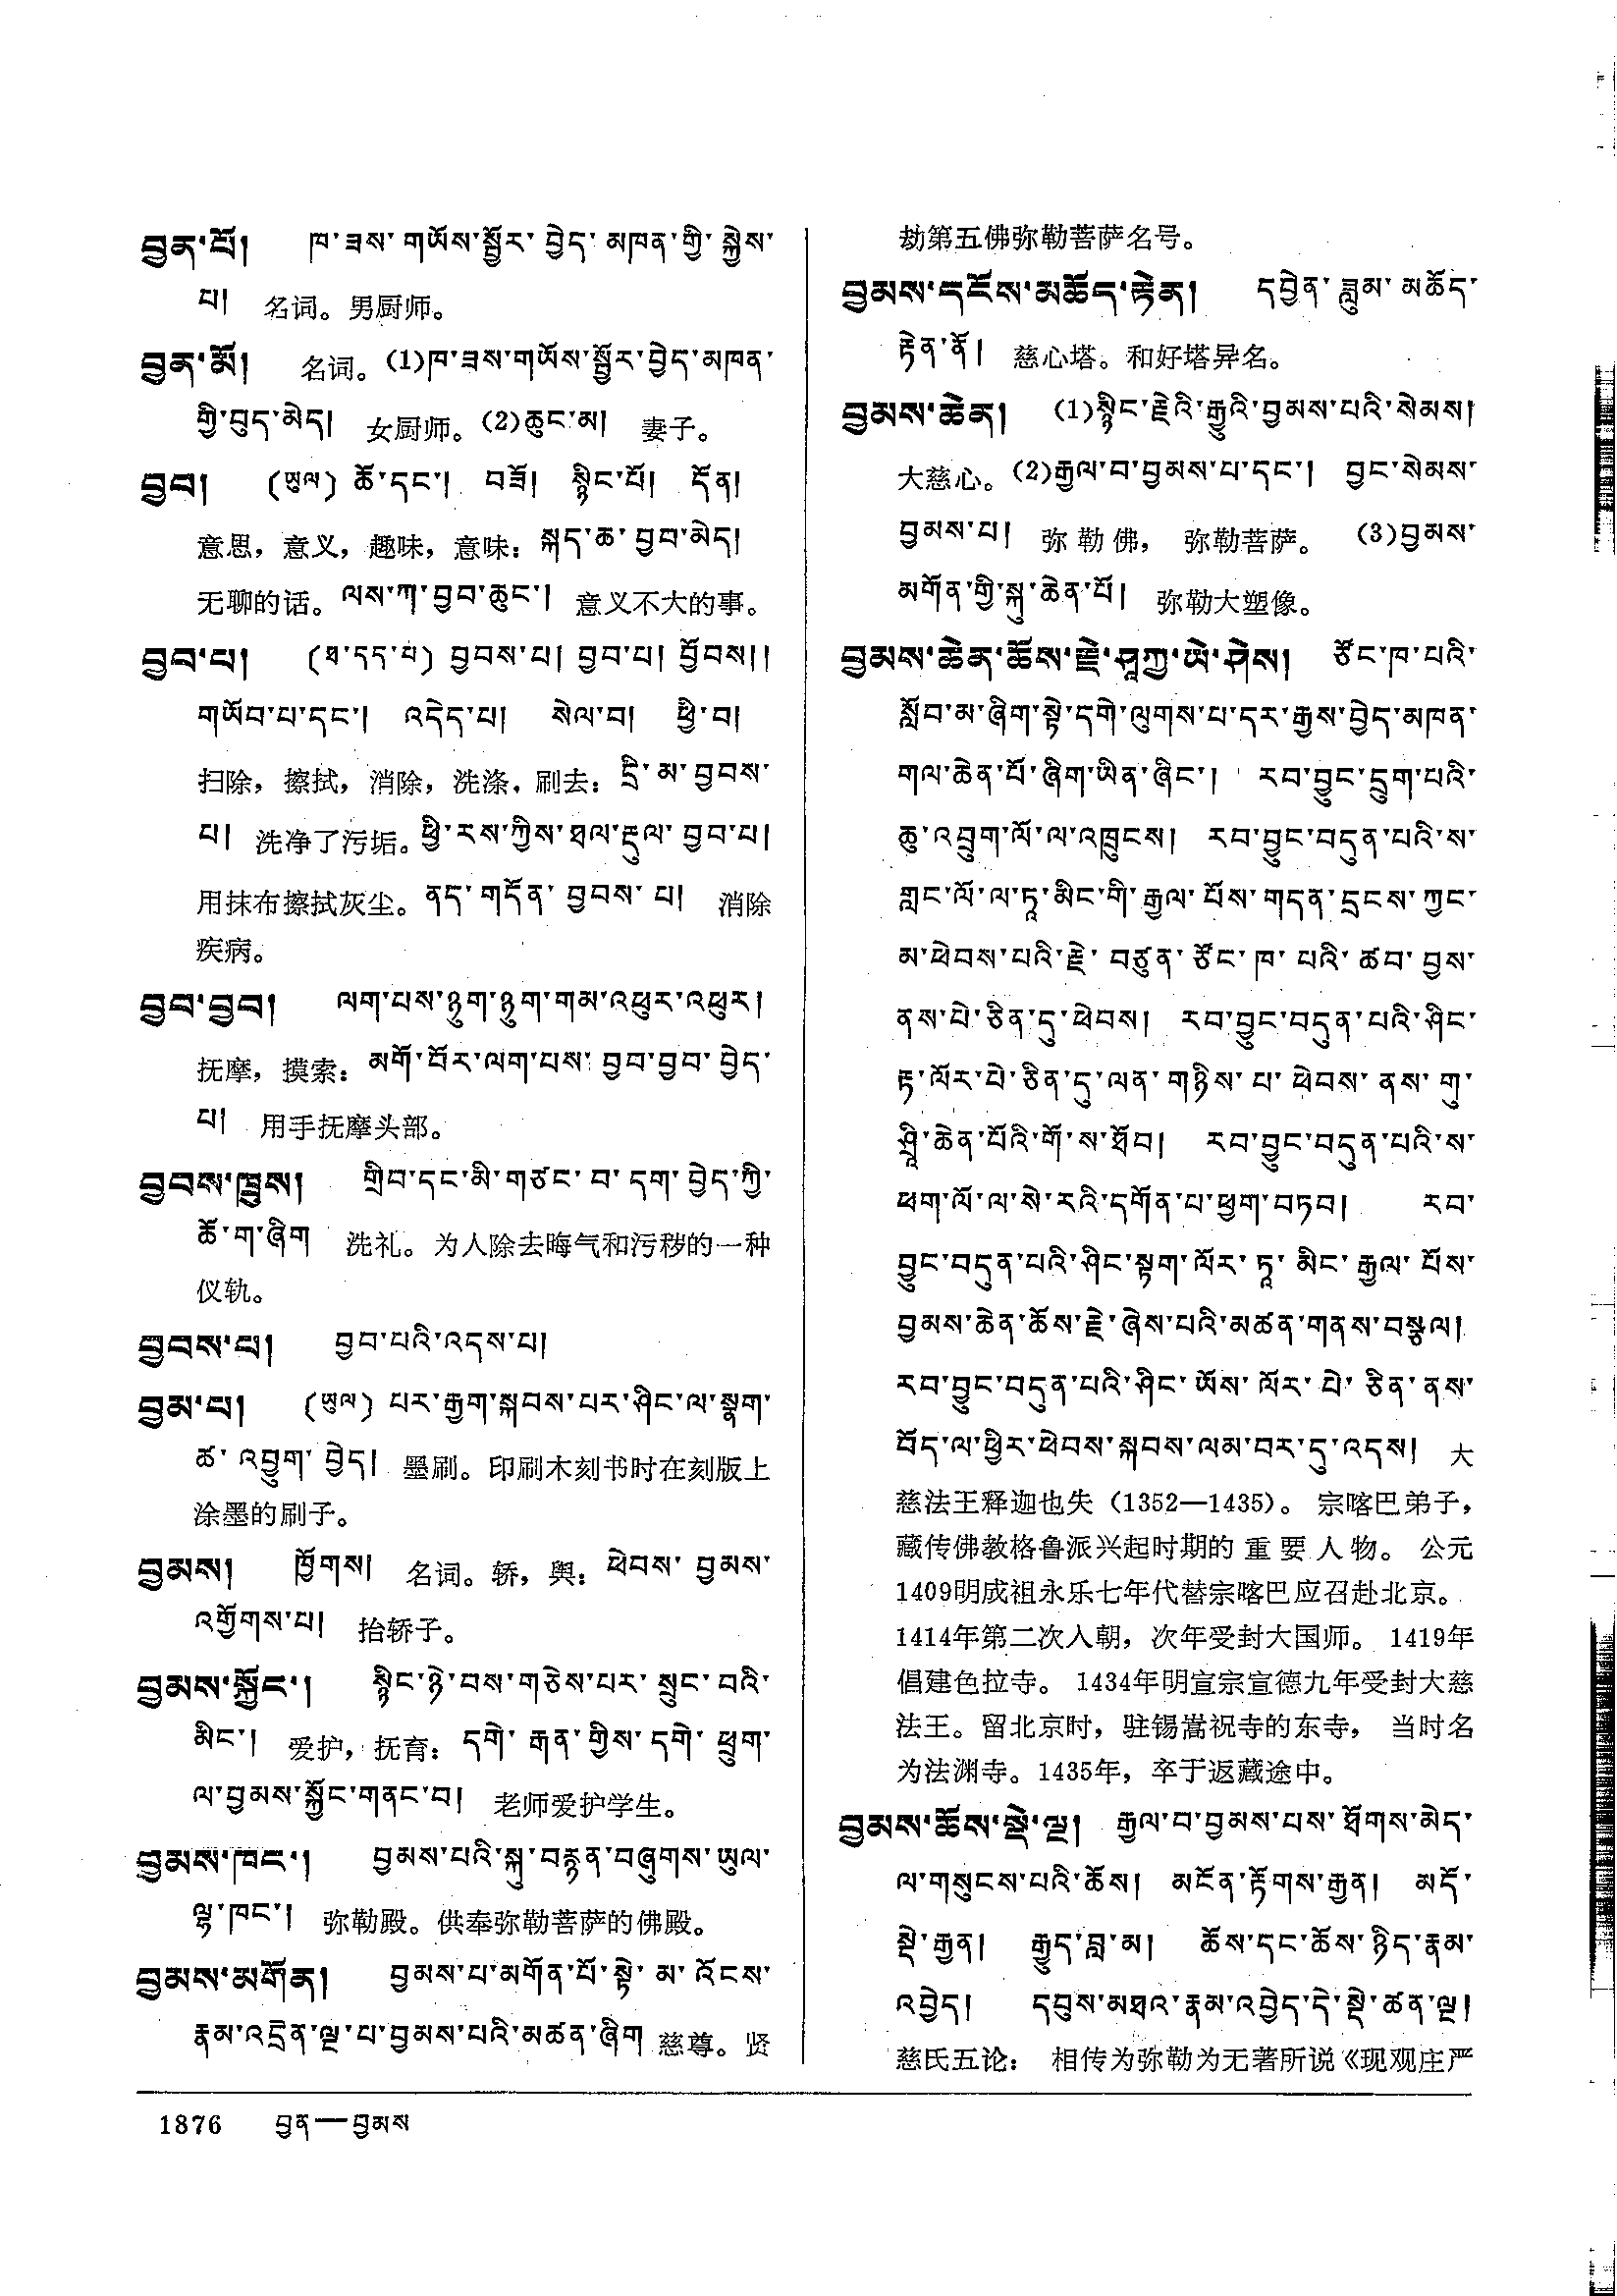 བྱན་པོ།	ཁ་ཟས་གཡོས་སྦྱོར་བྱེད་མཁན་གྱི་སྐྱེས་
པ། 名词。男厨师。
བྱན་མོ། 名词。(1)ཁ་ཟས་གཡོས་སྦྱོར་བྱེད་མཁན་
གྱི་བུད་མེད། 女厨师。(2)ཆུང་མ། 妻子。
བྱབ། (ཡུལ) ཚོ་དང་། བཟོ། སྙིང་པོ། དོན།
意思，意义，趣味，意味：སྐད་ཆ་བྱབ་མེད།
无聊的话。ལས་ཀ་བྱབ་ཆུང་། 意义不大的事。
བྱབ་པ། (ཐ་དད་པ) བྱབས་པ། བྱབ་པ། བྱོབས།།
གཡོབ་པ་དང་། འདེད་པ། སེལ་བ། ཕྱི་བ།
扫除，擦拭，消除，洗涤，刷去：དྲི་མ་བྱབས་
པ། 洗净了污垢。ཕྱི་རས་ཀྱིས་ཐལ་རྡུལ་བྱབ་པ།
用抹布擦拭灰尘。ནད་གདོན་བྱབས་པ། 消除
疾病。
བྱབ་བྱབ། ལག་པས་ཉུག་ཉུག་གམ་འཕུར་འཕུར།
抚摩，摸索：མགོ་བོར་ལག་པས་བྱབ་བྱབ་བྱེད་
པ། 用手抚摩头部。
བྱབས་ཁྲུས། གྲིབ་དང་མི་གཙང་བ་དག་བྱེད་ཀྱི་
ཆོ་ག་ཞིག 洗礼。为人除去晦气和污秽的一种
仪轨。
བྱབས་པ། བྱབ་པའི་འདས་པ།
བྱམ་པ། (ཡུལ) པར་རྒྱག་སྐབས་པར་ཤིང་ལ་སྣག་
ཚ་འབྱུག་བྱེད། 墨刷。印刷木刻书时在刻版上
涂墨的刷子。
བྱམས། ཁྱོགས། 名词。轿，舆：ཕེབས་བྱམས་
འགྱོགས་པ། 抬轿子。
བྱམས་སྐྱོང་། སྙིང་ཉེ་བས་གཅེས་པར་སྲུང་བའི་
མིང་། 爱护，抚育：དགེ་རྒན་གྱིས་དགེ་ཕྲུག་
ལ་བྱམས་སྐྱོང་གནང་བ། 老师爱护学生。
བྱམས་ཁང་། བྱམས་པའི་སྐུ་བརྙན་བཞུགས་ཡུལ་
ལྷ་ཁང་། 弥勒殿。供奉弥勒菩萨的佛殿。
བྱམས་མགོན། བྱམས་པ་མགོན་པོ་སྟེ་མ་འོངས་
རྣམ་འདྲེན་ལྔ་པ་བྱམས་པའི་མཚན་ཞིག 慈尊。贤
劫第五佛弥勒菩萨名号。
བྱམས་དངོས་མཆོད་རྟེན། དབྱེན་ཟླུམ་མཆོད་
རྟེན་ནོ། 慈心塔。和好塔异名。
བྱམས་ཆེན། (1)སྙིང་རྗེའི་རྒྱུའི་བྱམས་པའི་སེམས།
大慈心。(2)རྒྱལ་བ་བྱམས་པ་དང་། བྱང་སེམས་
བྱམས་པ། 弥勒佛，弥勒菩萨。(3)བྱམས་
མགོན་གྱི་སྐུ་ཆེན་པོ། 弥勒大塑像。
བྱམས་ཆེན་ཆོས་རྗེ་ཤཱཀྱ་ཡེ་ཤེས། ཙོང་ཁ་པའི་
སློབ་མ་ཞིག་སྟེ་དགེ་ལུགས་པ་དར་རྒྱས་བྱེད་མཁན་
གལ་ཆེན་པོ་ཞིག་ཡིན་ཞིང་། རབ་བྱུང་དྲུག་པའི་
ཆུ་འབྲུག་ལོ་ལ་འཁྲུངས། རབ་བྱུང་བདུན་པའི་ས་
གླང་ལོ་ལ་ཏཱ་མིང་གི་རྒྱལ་པོས་གདན་དྲངས་ཀྱང་
མ་ཕེབས་པའི་རྗེ་བཙུན་ཙོང་ཁ་པའི་ཚབ་བྱས་
ནས་པེ་ཅིན་དུ་ཕེབས། རབ་བྱུང་བདུན་པའི་ཤིང་
རྟ་ལོར་པེ་ཅིན་དུ་ལན་གཉིས་པ་ཕེབས་ནས་གུ་
ཤྲཱི་ཆེན་པོའི་གོ་ས་ཐོབ། རབ་བྱུང་བདུན་པའི་ས་
ཕག་ལོ་ལ་སེ་རའི་དགོན་པ་ཕྱག་བཏབ། རབ་
བྱུང་བདུན་པའི་ཤིང་སྟག་ལོར་ཏཱ་མིང་རྒྱལ་པོས་
བྱམས་ཆེན་ཆོས་རྗེ་ཞེས་པའི་མཚན་གནས་བསྩལ།
རབ་བྱུང་བདུན་པའི་ཤིང་ཡོས་ལོར་པེ་ཅིན་ནས་
བོད་ལ་ཕྱིར་ཕེབས་སྐབས་ལམ་བར་དུ་འདས། 大
慈法王释迦也失（1352—1435）。宗喀巴弟子，
藏传佛教格鲁派兴起时期的重要人物。公元
1409明成祖永乐七年代替宗喀巴应召赴北京。
1414年第二次入朝，次年受封大国师。1419年
倡建色拉寺。1434年明宣宗宣德九年受封大慈
法王。留北京时，驻锡嵩祝寺的东寺，当时名
为法渊寺。1435年，卒于返藏途中。
བྱམས་ཆོས་སྡེ་ལྔ། རྒྱལ་བ་བྱམས་པས་ཐོགས་མེད་
ལ་གསུངས་པའི་ཆོས། མངོན་རྟོགས་རྒྱན། མདོ་
སྡེ་རྒྱན། རྒྱུད་བླ་མ། ཆོས་དང་ཆོས་ཉིད་རྣམ་
འབྱེད། དབུས་མཐའ་རྣམ་འབྱེད་དེ་སྡེ་ཚན་ལྔ།
慈氏五论：相传为弥勒为无著所说《现观庄严
1876 བྱན—བྱམས